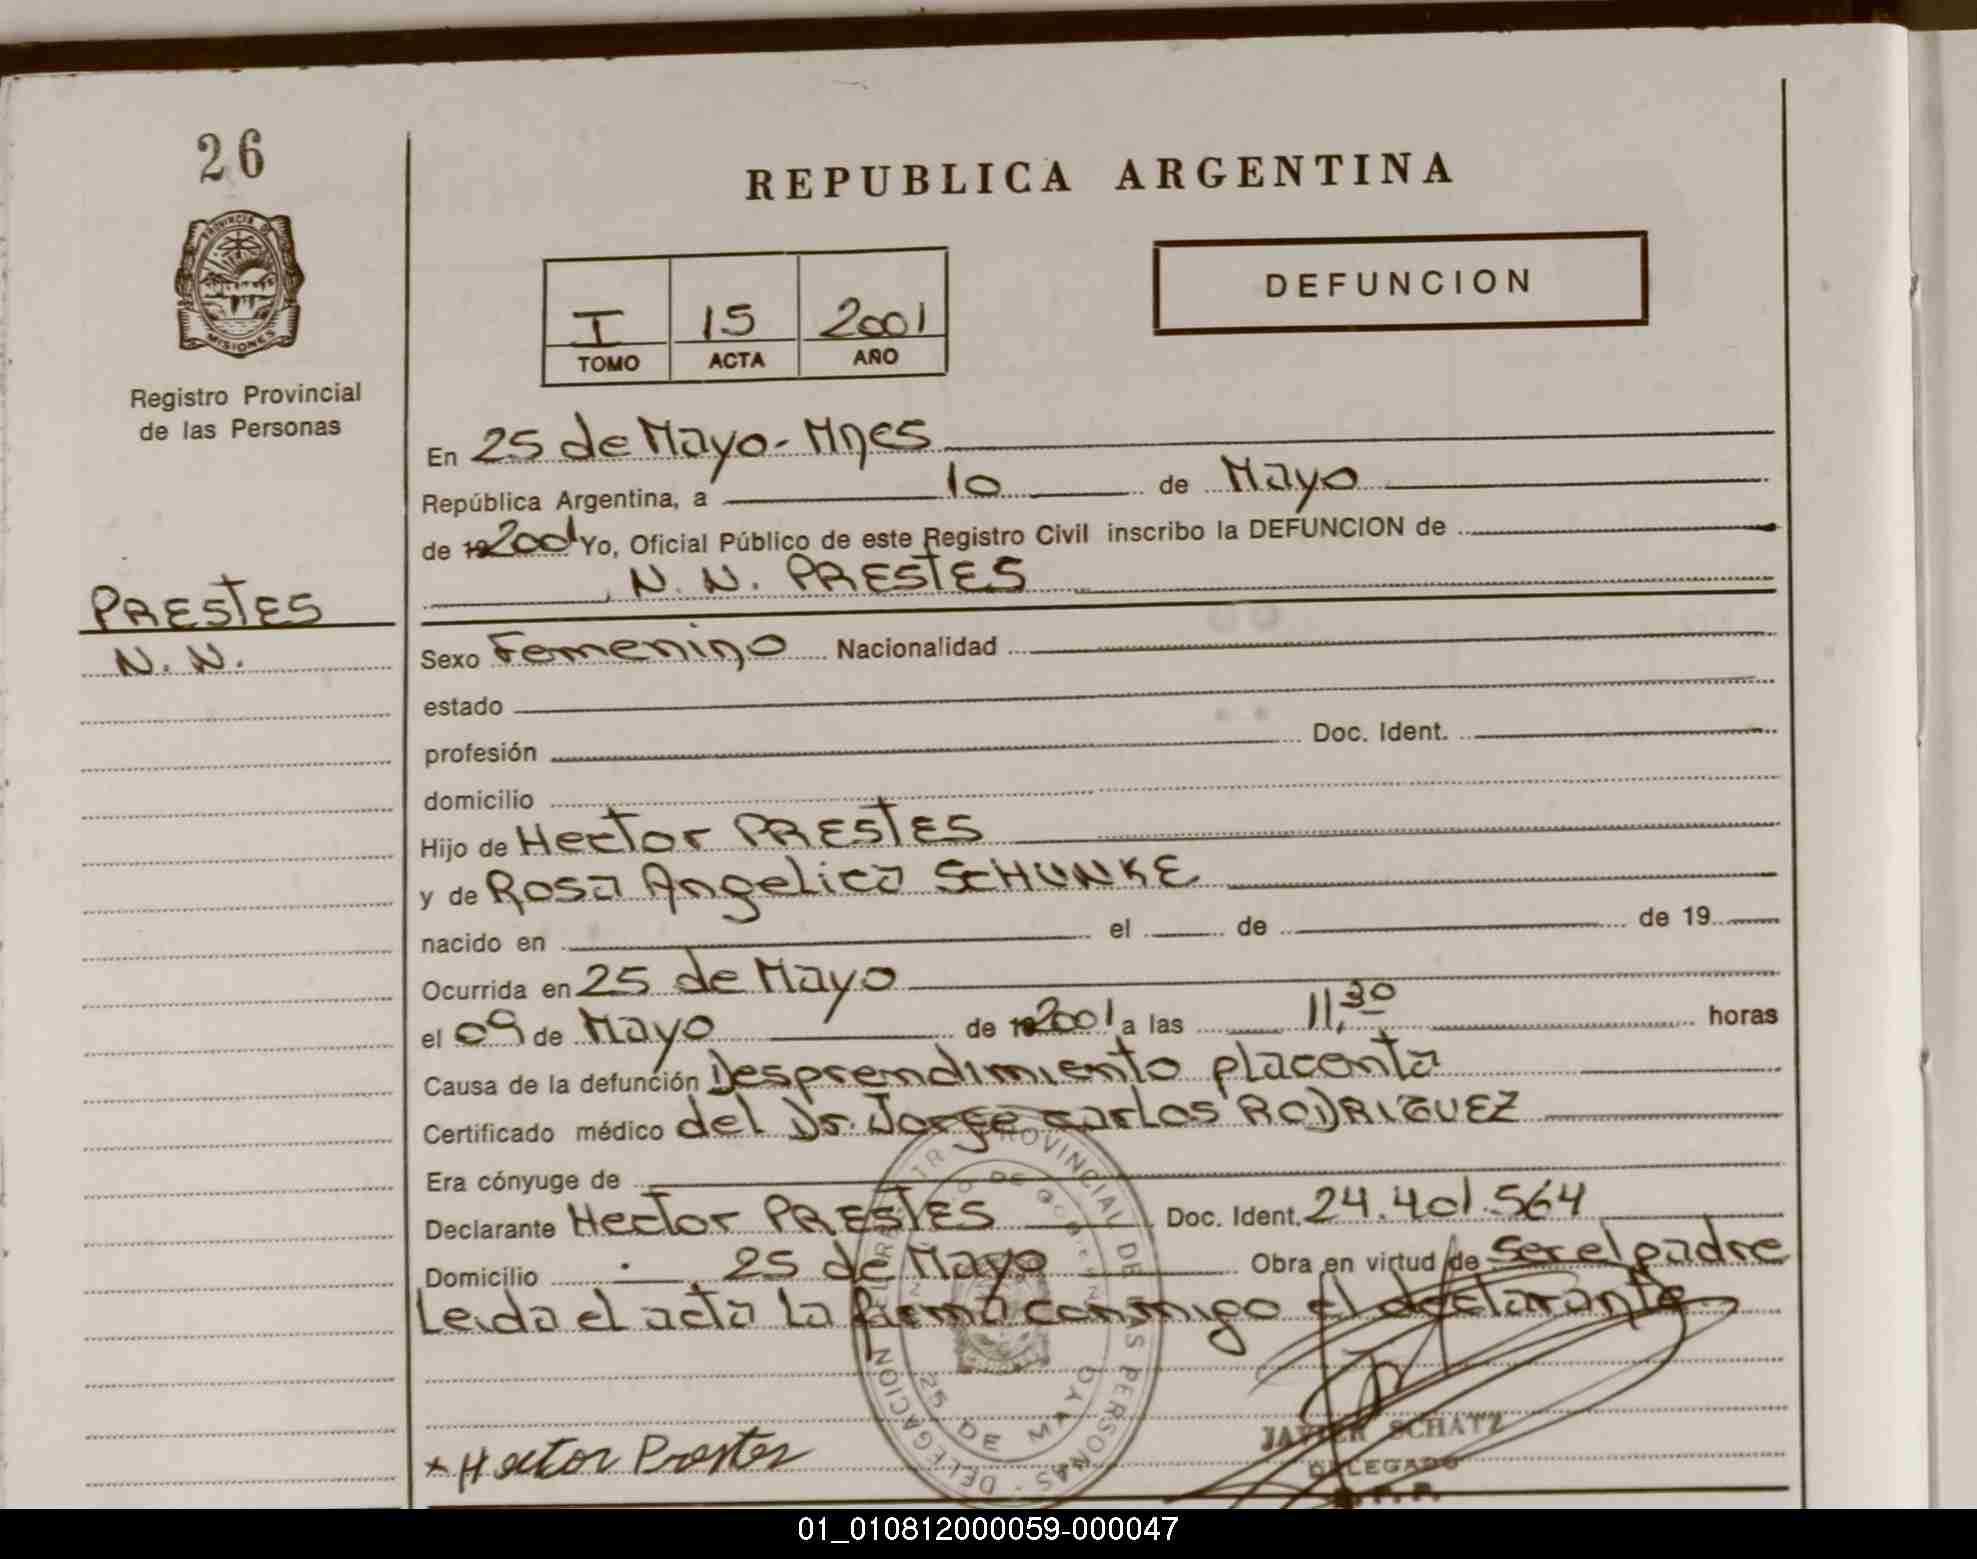 26
PROVINCIA DE
MISIONES
Registro Provincial
de las Personas
PRESTES
N. N.
REPUBLICA ARGENTINA
I 15 2001
TOMO ACTA AÑO
DEFUNCION
En 25 de Mayo - Mnes
República Argentina, a 10 de Mayo
de 19 2001 Yo, Oficial Público de este Registro Civil inscribo la DEFUNCION de
N. N. PRESTES
Sexo Femenino Nacionalidad
estado
profesión Doc. Ident.
domicilio
Hijo de Hector PRESTES
y de Rosa Angelica SCHUNKE
nacido en el de de 19
Ocurrida en 25 de Mayo
el 09 de Mayo de 19 2001 a las 11,30 horas
Causa de la defunción Desprendimiento placenta
Certificado médico del Dr. Jorge Carlos RODRIGUEZ
Era cónyuge de
Declarante Hector PRESTES Doc. Ident. 24.401.564
Domicilio 25 de Mayo Obra en virtud de ser el padre
Leida el acta la firma conmigo el declarante
PROVINCIAL DE LAS PERSONAS
DELEGACION
25 DE MAYO
Hector Prestes
JAVIER SCHATZ
DELEGADO
01_010812000059-000047